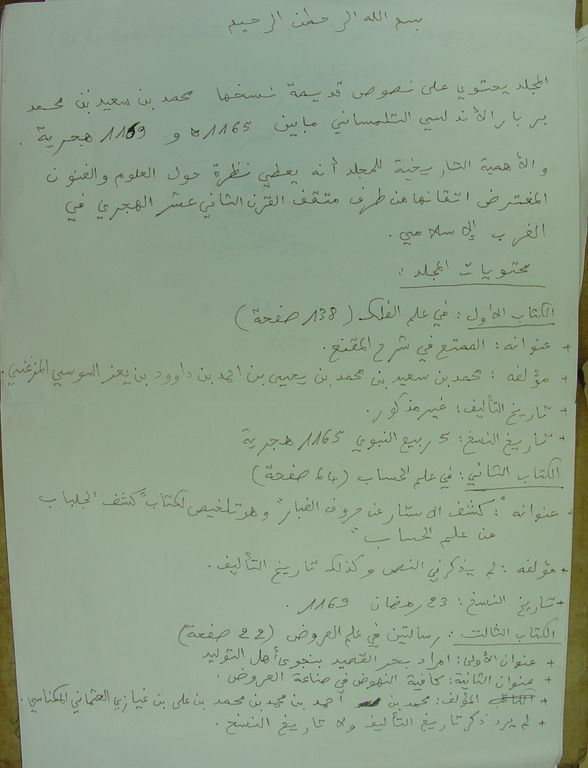 بسم الله الرحمان الرحيم
المجلد يحتوي على نصوص قديمة نسخها محمد بن سعيد بن محمد
بربار الأندلسي التلمساني مابين 1165 ه و 1169 هجرية .
والأهمية التاريخية للمجلد أنه يعطي نظرة حول العلوم والفنون
المفترض اتقانها من طرف مثقف القرن الثاني عشر الهجري في
الغرب الإسلامي .
محتويات المجلد :
الكتاب الأول : في علم الفلك ( 138 صفحة )
+ عنوانه : الممتع في شرح المقنع .
+ مؤلفه : محمد بن سعيد بن محمد بن يحيى بن احمد بن داوود بن يعز السوسي المرغتي .
+ تاريخ التأليف : غير مذكور .
+ تاريخ النسخ : 5 ربيع النبوي 1165 هجرية
الكتاب الثاني : في علم الحساب ( 64 صفحة )
+ عنوانه : "كشف الاستار عن حروف الغبار" وهو تلخيص لكتاب "كشف الجلباب
عن علم الحساب"
+ مؤلفه : لم يذكر في النص وكذلك تاريخ التأليف .
+ تاريخ النسخ : 23 رمضان 1169 .
الكتاب الثالث : رسالتين في علم العروض ( 22 صفحة )
+ عنوان الأولى : امراد بحر القصيد بنحوى أهل التوليد
+ عنوان الثانية : كافية النهوض في صناعة العروض .
+ المؤلف : محمد بن أحمد بن محمد بن محمد بن علي بن غيازي العثماني المكناسي .
+ لم يرد ذكر تاريخ التأليف ولا تاريخ النسخ .